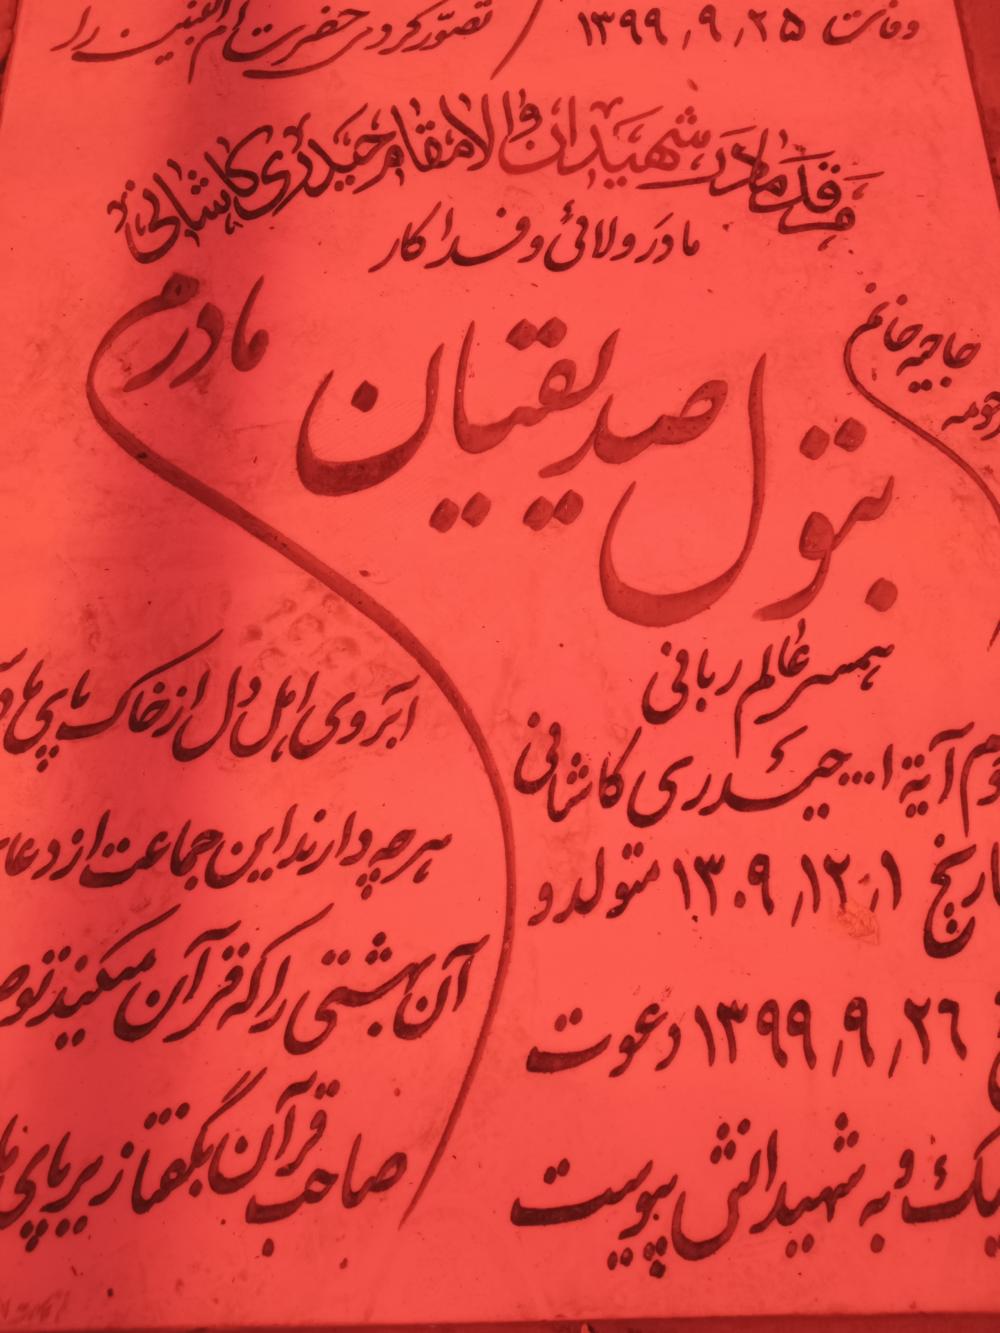 وفات ۱۳۹۹٫۹٫۲۵
تصور کردی حضرت ام البنین را
مرقد مادر شهیدان والامقام حیدری کاشانی
مادر ولائی و فداکار
حاجیه خانم
بتول صدیقیان
همسر عالم ربانی
آیة ا... حیدری کاشانی
۱۳۰۹٫۱۲٫۱ متولد و
۱۳۹۹٫۹٫۲۶ دعوت
و به شهیدانش پیوست
مادرم
آبروی اهل دل از خاک پای
هرچه دارند این جماعت از
آن بهشتی را که قرآن میکند
صاحب قرآن بگفتا زیر پای